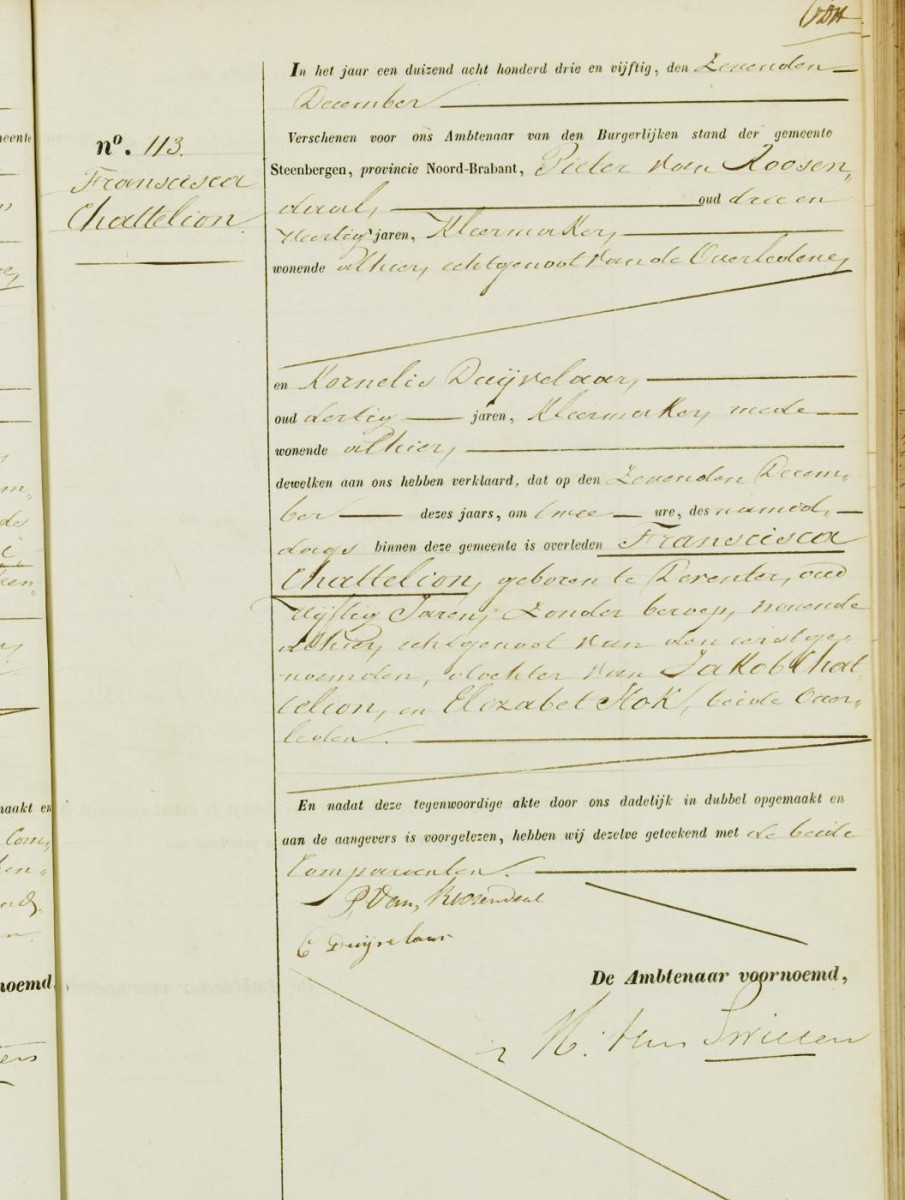 In het jaar een duizend acht honderd drie en vijftig, den Zevenden
December
nº. 113.
Franscisca
Chattelion.
Verschenen voor ons Ambtenaar van den Burgerlijken stand der gemeente
Steenbergen, provincie Noord-Brabant, Pieter van Roosen„
daal, oud drie en
Veertig jaren, Kleermaker,
wonende alhier, echtgenoot van de Overledene,
en Kornelis Duijvelaar,
oud dertig jaren, Kleermaker, mede
wonende alhier,
dewelken aan ons hebben verklaard, dat op den Zevenden Decem„
ber dezes jaars, om twee ure, des namid„
dags binnen deze gemeente is overleden Franscisca
Chattelion, geboren te Deventer, oud
Vijftig Jaren, Zonder beroep, wonende
alhier, echtgenoot van den eerstge„
noemden, dochter van Jakob Chat„
telion, en Elizabet Kok, beide Over„
leden.
En nadat deze tegenwoordige akte door ons dadelijk in dubbel opgemaakt en
aan de aangevers is voorgelezen, hebben wij dezelve geteekend met de beide
Comparanten.
P, Van, Roosendaal
C Duijvelaar
De Ambtenaar voornoemd,